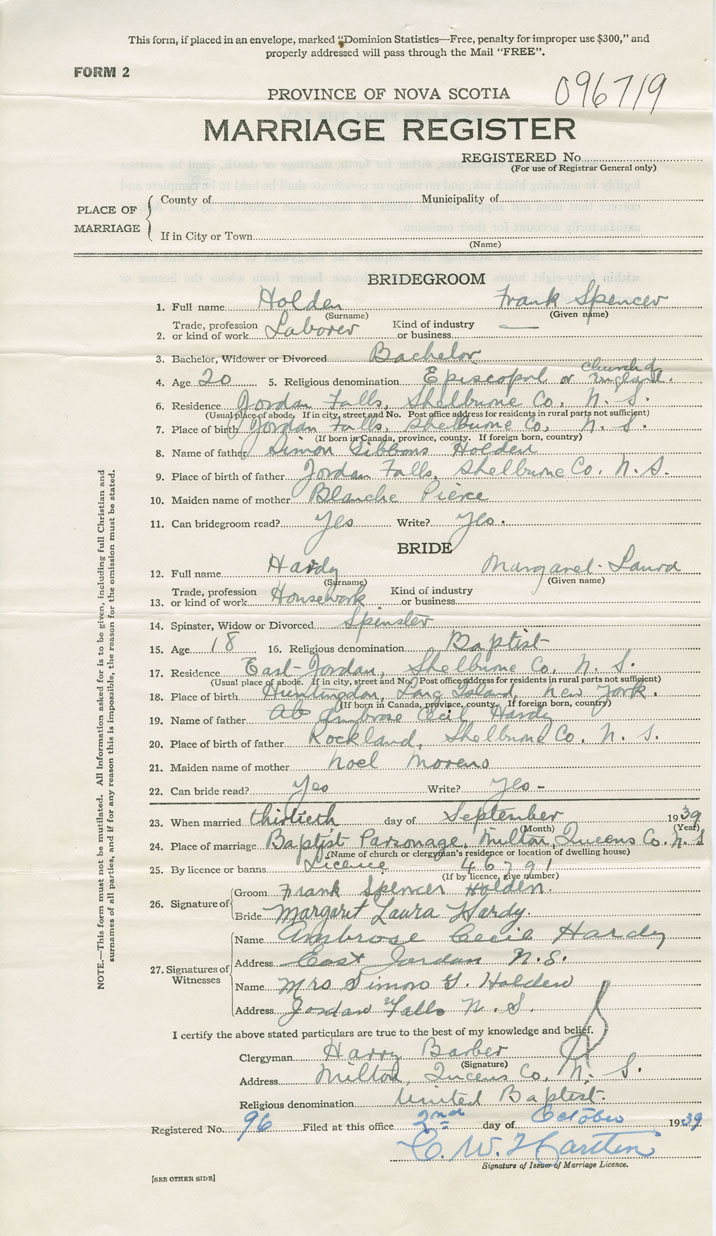 This form, if placed in an envelope, marked "Dominion Statistics—Free, penalty for improper use $300," and
properly addressed will pass through the Mail "FREE".
FORM 2
096719
PROVINCE OF NOVA SCOTIA
MARRIAGE REGISTER
REGISTERED No.
(For use of Registrar General only)
PLACE OF MARRIAGE
County of Municipality of
If in City or Town
(Name)
BRIDEGROOM
1. Full name Holden Frank Spencer
(Surname) (Given name)
2. Trade, profession or kind of work Laborer Kind of industry or business —
3. Bachelor, Widower or Divorced Bachelor
4. Age 20 5. Religious denomination Episcopal or Church of England.
6. Residence Jordan Falls, Shelburne Co, N. S.
(Usual place of abode. If in city, street and No. Post office address for residents in rural parts not sufficient)
7. Place of birth Jordan Falls, Shelburne Co, N. S.
(If born in Canada, province, county. If foreign born, country)
8. Name of father Simon Gibbons Holden
9. Place of birth of father Jordan Falls, Shelburne Co. N. S.
10. Maiden name of mother Blanche Pierce
11. Can bridegroom read? Yes Write? Yes.
BRIDE
12. Full name Hardy Margaret Laura
(Surname) (Given name)
13. Trade, profession or kind of work Housework Kind of industry or business
14. Spinster, Widow or Divorced Spinster
15. Age 18 16. Religious denomination Baptist
17. Residence East Jordan, Shelburne Co, N. S.
(Usual place of abode. If in city, street and No. Post office address for residents in rural parts not sufficient)
18. Place of birth Huntingdon, Long Island, New York.
(If born in Canada, province, county. If foreign born, country)
19. Name of father Ab Ambrose Cecil Hardy
20. Place of birth of father Rockland, Shelburne Co. N. S.
21. Maiden name of mother Noel Morens
22. Can bride read? Yes Write? Yes-
23. When married thirtieth day of September 1939
(Month) (Year)
24. Place of marriage Baptist Parsonage, Milton, Queens Co. N. S
(Name of church or clergyman's residence or location of dwelling house)
25. By licence or banns Licence 46791
(If by licence, give number)
26. Signature of
Groom Frank Spencer Holden.
Bride Margaret Laura Hardy.
27. Signatures of Witnesses
Name Ambrose Cecil Hardy
Address East Jordan N.S.
Name Mrs Simon G. Holden
Address Jordan Falls N. S.
I certify the above stated particulars are true to the best of my knowledge and belief.
Clergyman Harry Barber
(Signature)
Address Milton, Queens Co, N. S.
Religious denomination United Baptist.
Registered No. 96 Filed at this office 2nd day of October 1939
Signature of Issuer of Marriage Licence.
[SEE OTHER SIDE]
NOTE.—This form must not be mutilated. All information asked for is to be given, including full Christian and
surnames of all parties, and if for any reason this is impossible, the reason for the omission must be stated.